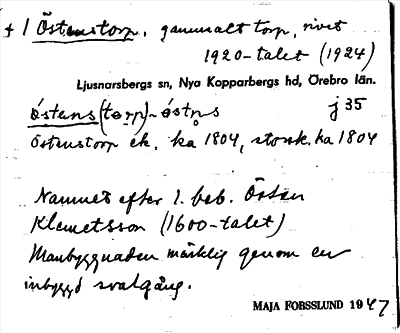 + 1 Östenstorp, gammalt torp, rivet
1920-talet (1924)
Ljusnarsbergs sn, Nya Kopparbergs hd, Örebro län.
östens (torp) ~ östns j 35
Östenstorp ek. ka 1804, storsk. ka 1804
Namnet efter 1. beb. Östen
Klemetsson (1600-talet)
Manbyggnaden märklig genom en
inbyggd svalgång.
MAJA FORSSLUND 1947